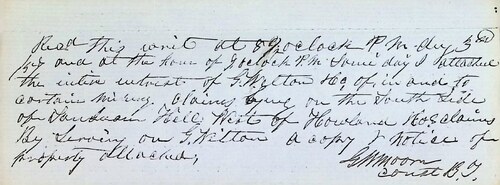 Recd this writ at 8 oclock P.M. Aug 3rd
and at the hour of 9 oclock P.M. Same day I attached
the intire intrest of G. Wilton & Co. of in and to
certain mining Claims lying on the South Side
of Hill West of Howland & Co Claims
By Serving on G. Wilton a copy & notice of
property attached,
G W Moon
Const B. T.